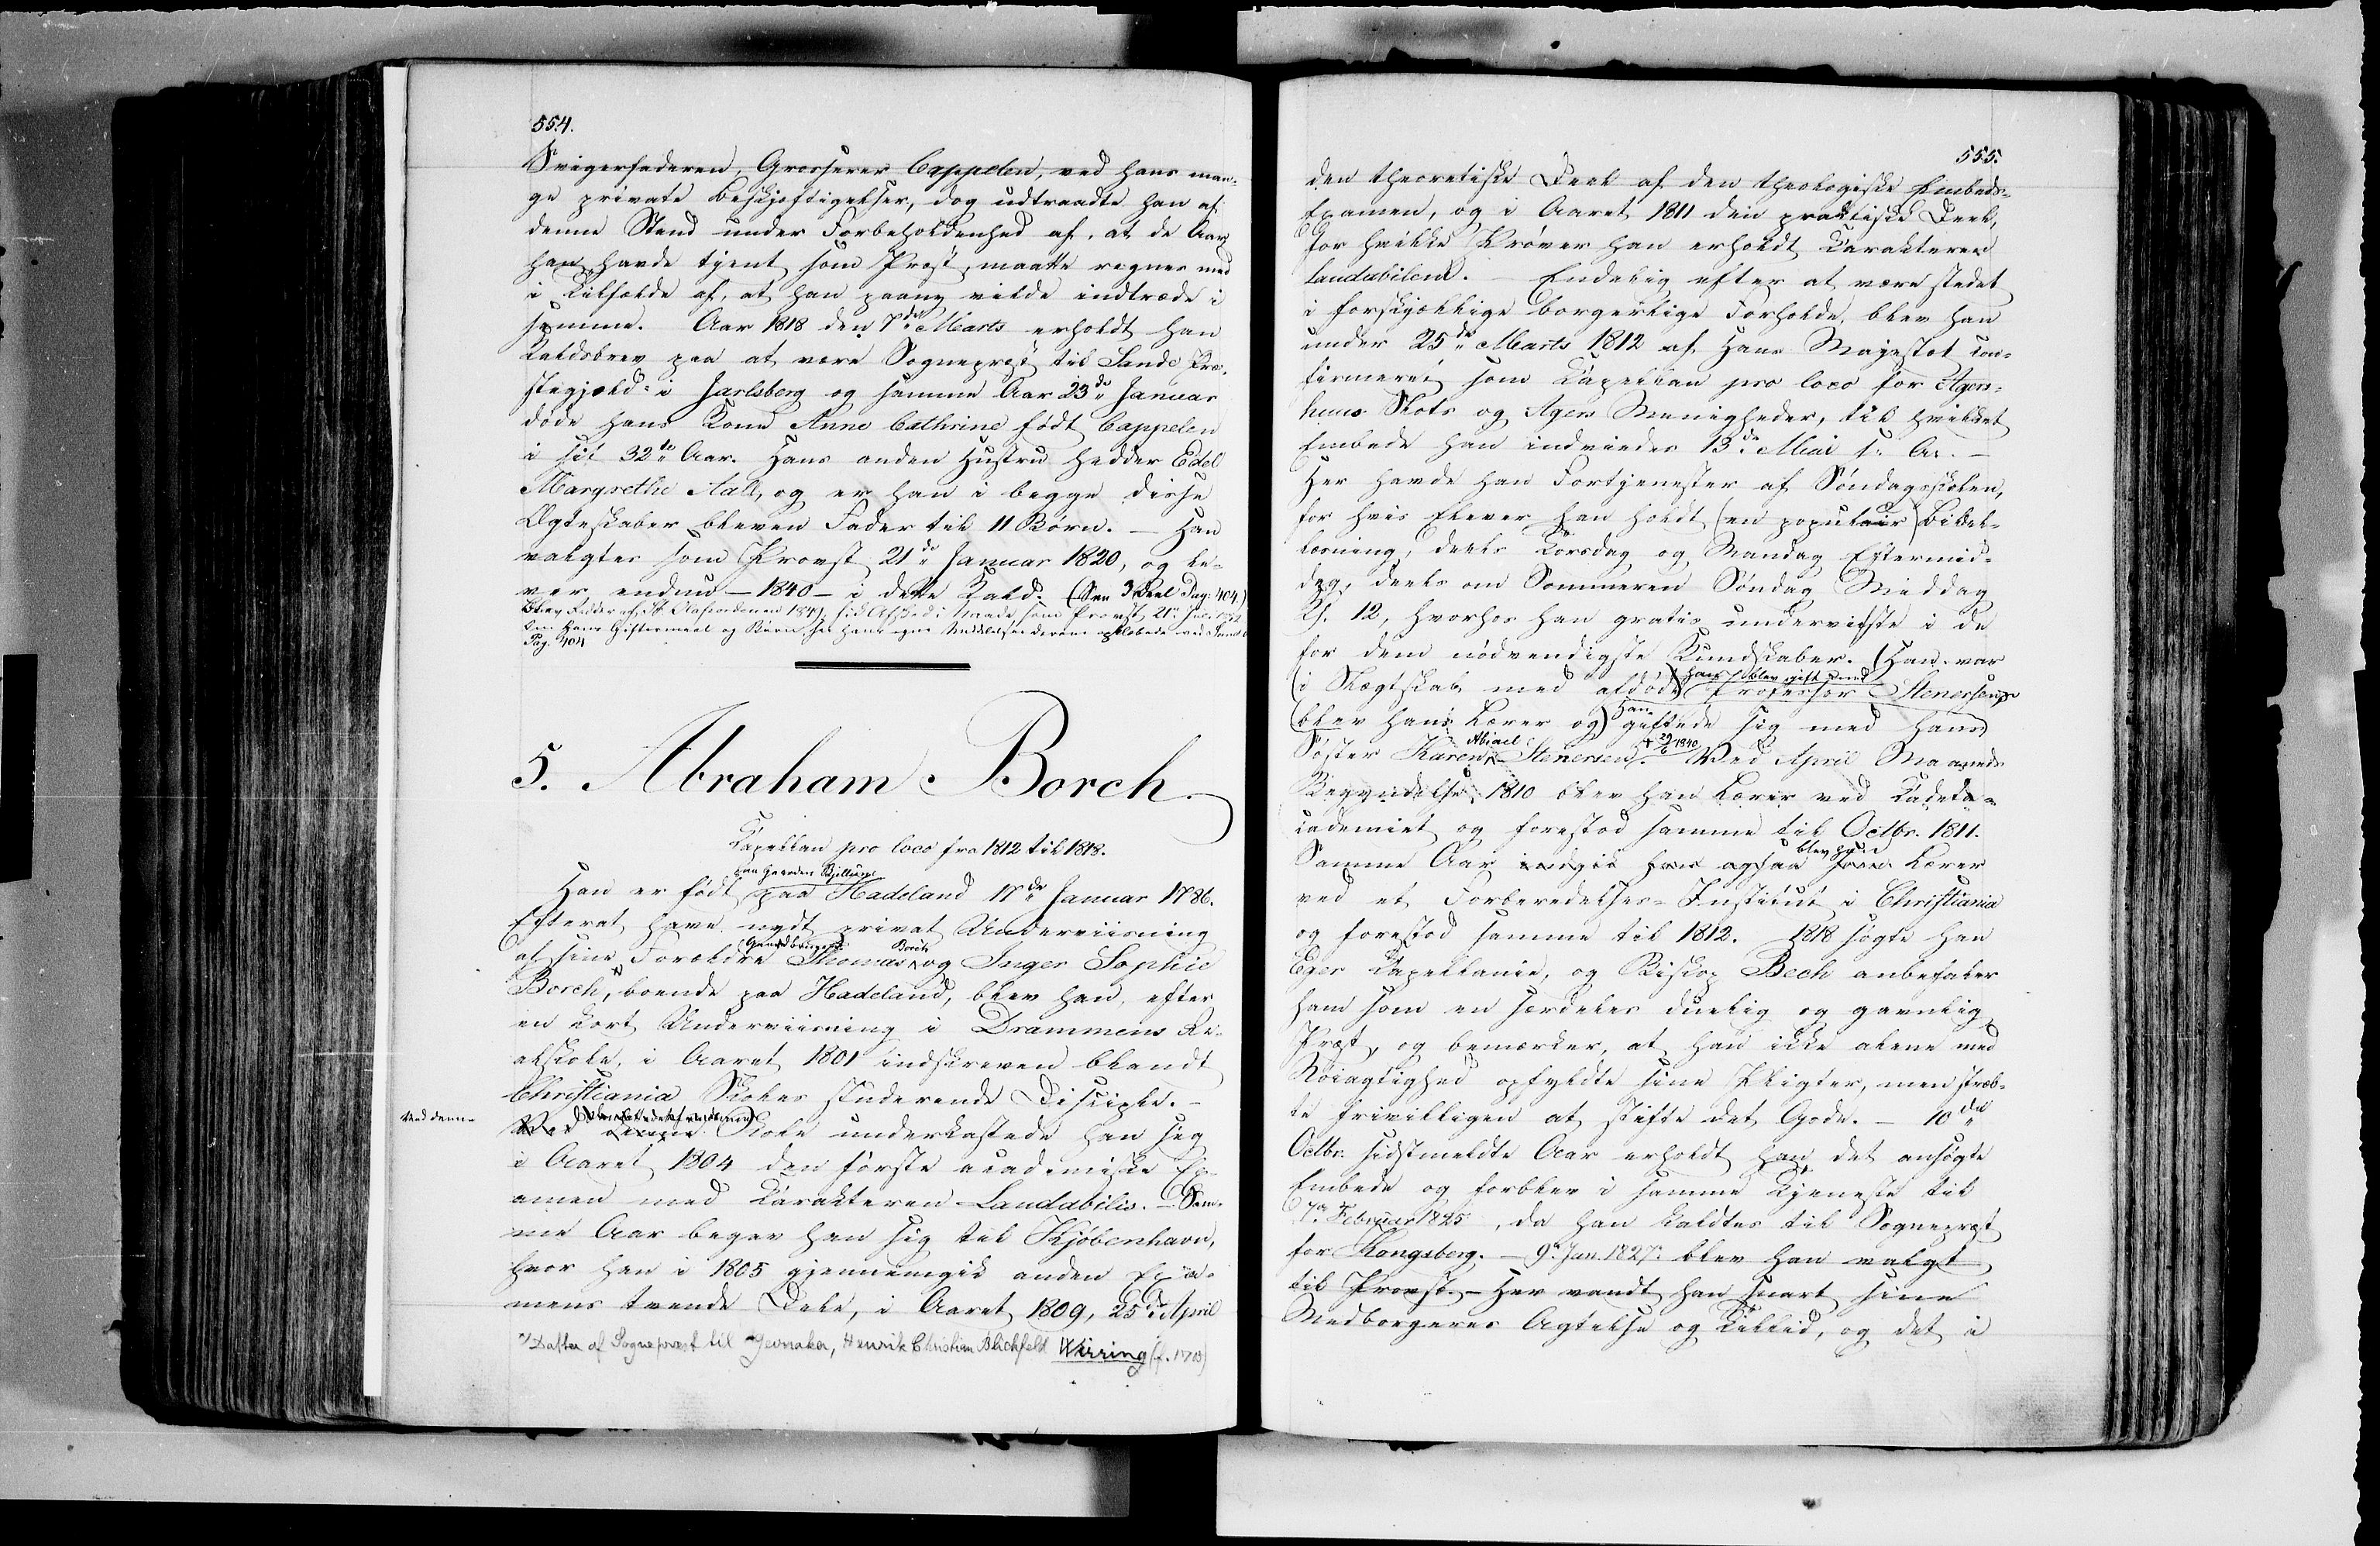 554.
Svigerfaderen, Grosserer Cappelen, ved hans man-
ge private Beskjæftigelser, dog udtraadte han af
denne Stand under Forbeholdenhed af, at de Aar
han havde tjent som Præst, maatte regnes med
i Tilfælde af, at han paany vilde indtræde i
samme. Aar 1818 den 7de Marts erholdt han
Kaldsbrev paa at være Sognepræst til Sande Præ-
stegjæld i Jarlsberg og samme Aar 23de Januar
døde hans Kone Anne Cathrine født Cappelen
i sit 32te Aar. Hans anden Hustru hedder Edel
Margrethe Aall, og er han i begge disse
Ægteskaber bleven Fader til 11 Børn. — Han
valgtes som Provst 21de Januar 1820, og le-
ver endnu — 1840 — i dette Kald. (See 3 Deel Pag: 404)
Blev Ridder af St. Olafsordenen 1847, fik Afsked i Naade som Provst 21
Hans Giftermaal og Børn see hans egne Meddelelser derom
Pag. 404
5. Abraham Borch.
Kapellan pro loco fra 1812 til 1818.
paa Gaarden Bjellum
Han er født paa Hadeland 17de Januar 1786.
Efterat have nydt privat Underviisning
(Gaardbruger) Borch
af sine Forældre Thomas og Inger Sophie
Borch, boende paa Hadeland, blev han, efter
en kort Underviisning i Drammens Re-
alskole, i Aaret 1801 indskreven blandt
Christiania Skoles studerende Disciple. —
Ved denne
Ved denne Skole underkastede han sig
i Aaret 1804 den første academiske Ex-
amen med Karakteren Laudabilis. — Sam-
me Aar begav han sig til Kjøbenhavn,
hvor han i 1805 gjennemgik anden Exa-
mens tvende Dele, i Aaret 1809, 25de April
*) Datter af Sogneprest til Jevnaker, Henrik Christian Blichfeldt Wirring (f. 1713)
555.
den theoretiske Deel af den theologiske Embeds-
Examen, og i Aaret 1811 den praktiske Deel,
for hvilke Prøver han erholdt Karakteren
laudabilem. — Endelig efter at være stedet
i forskjællige borgerlige Forholde, blev han
under 25de Marts 1812 af Hans Majestæt con-
firmeret som Kapellan pro loco for Agers-
huus Slots og Agers Menigheder, til hvilket
Embede han indviedes 13de Mai s. A. —
Her havde han Fortjenester af Søndagsskolen,
for hvis Elever han holdt (en populair) Bibel-
læsning, deels Torsdag og Mandag Eftermid-
dag, deels om Sommeren Søndag Middag
Kl. 12, hvorhos han gratis underviiste i de
for dem nødvendigste Kundskaber. (Han var
hans / blev gift med
i Slægtskab med afdøde Professor Stenersen,
Han
(blev hans Lærer og) giftede sig med hans
Abiael + 29/6 1840
Søster Karen Stenersen. Ved April Maaneds
Begyndelse 1810 blev han Lærer ved Kadeta-
cademiet og forestod samme til Octbr. 1811.
blev han
Samme Aar indgik han ogsaa som Lærer
ved et Forberedelses-Institut i Christiania
og forestod samme til 1812. 1818 søgte han
Eger Kapellanie, og Biskop Bech anbefaler
ham som en særdeles duelig og gavnlig
Præst, og bemærker, at han ikke alene med
Nøiagtighed opfyldte sine Pligter, men stræb-
te frivilligen at stifte det Gode. — 10de
Octbr. sidstmeldte Aar erholdt han det ansøgte
Embede og forblev i samme Tjeneste til
7de Februar 1825, da han kaldtes til Sognepræst
for Kongsberg. — 9de Jan. 1827 blev han valgt
til Provst. — Her vandt han snart sine
Medborgeres Agtelse og Tillid, og det i